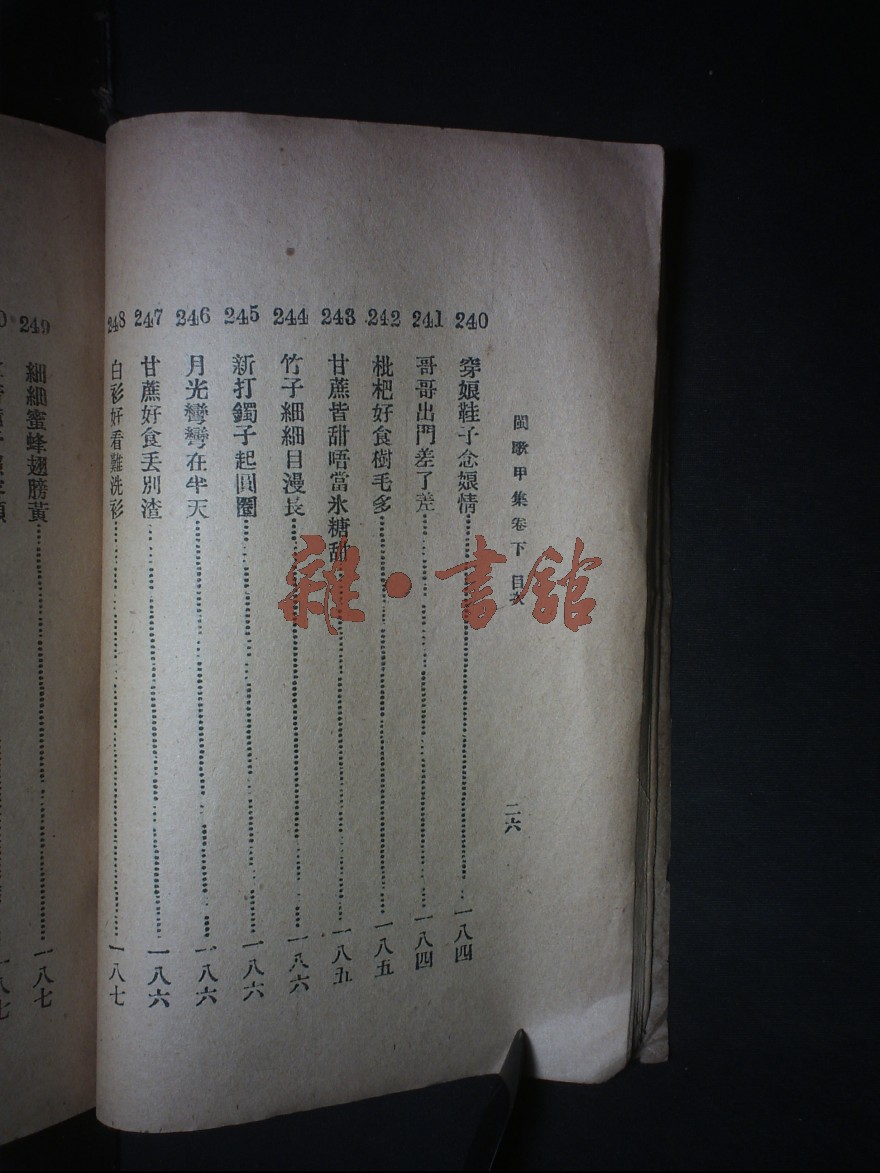 閩歌甲集卷下 目次 二六
240 穿娘鞋子念娘情 一八四
241 哥哥出門差了差 一八四
242 枇杷好食樹毛多 一八五
243 甘蔗皆甜唔當氷糖甜 一八五
244 竹子細細目漫長 一八六
245 新打鐲子起圓圈 一八六
246 月光彎彎在半天 一八六
247 甘蔗好食丢別渣 一八六
248 白衫好看難洗衫 一八七
249 細細蜜蜂翅膀黃 一八七
雜·書館